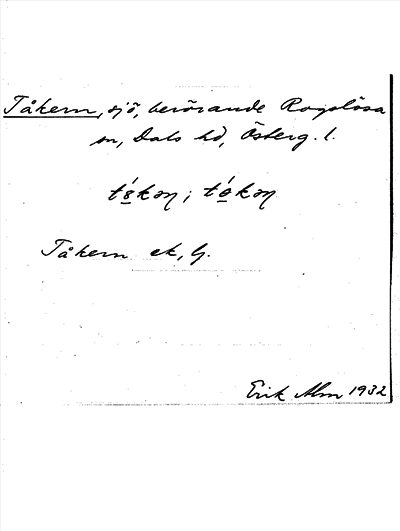 Tåkern, sjö, berörande Rogslösa
sn, Dals hd, Österg. l.
Tåkern ek, G.
Erik Alm 1932